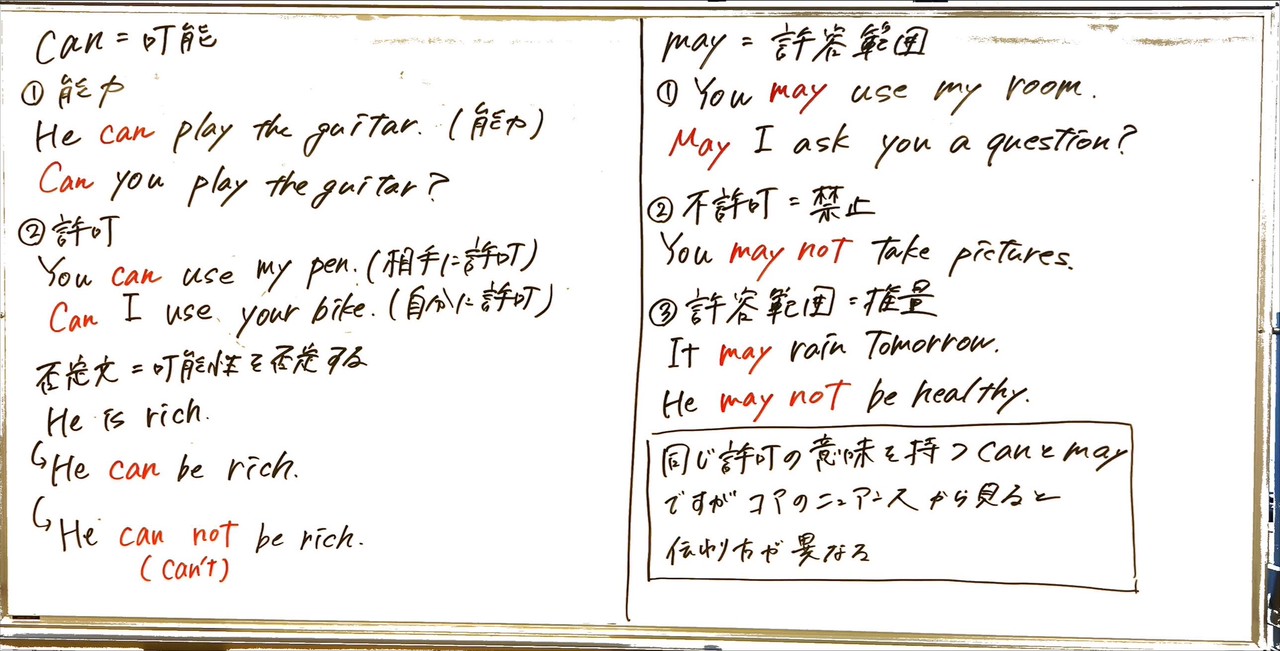 can = 可能
① 能力
He can play the guitar. (能力)
Can you play the guitar?
② 許可
You can use my pen. (相手に許可)
Can I use your bike. (自分に許可)
否定文 = 可能性を否定する
He is rich.
↳ He can be rich.
↳ He can not be rich.
(can't)
may = 許容範囲
① You may use my room.
May I ask you a question?
② 不許可 = 禁止
You may not take pictures.
③ 許容範囲 = 推量
It may rain Tomorrow.
He may not be healthy.
同じ許可の意味を持つcanとmay
ですがコアのニュアンスから見ると
伝わり方が異なる